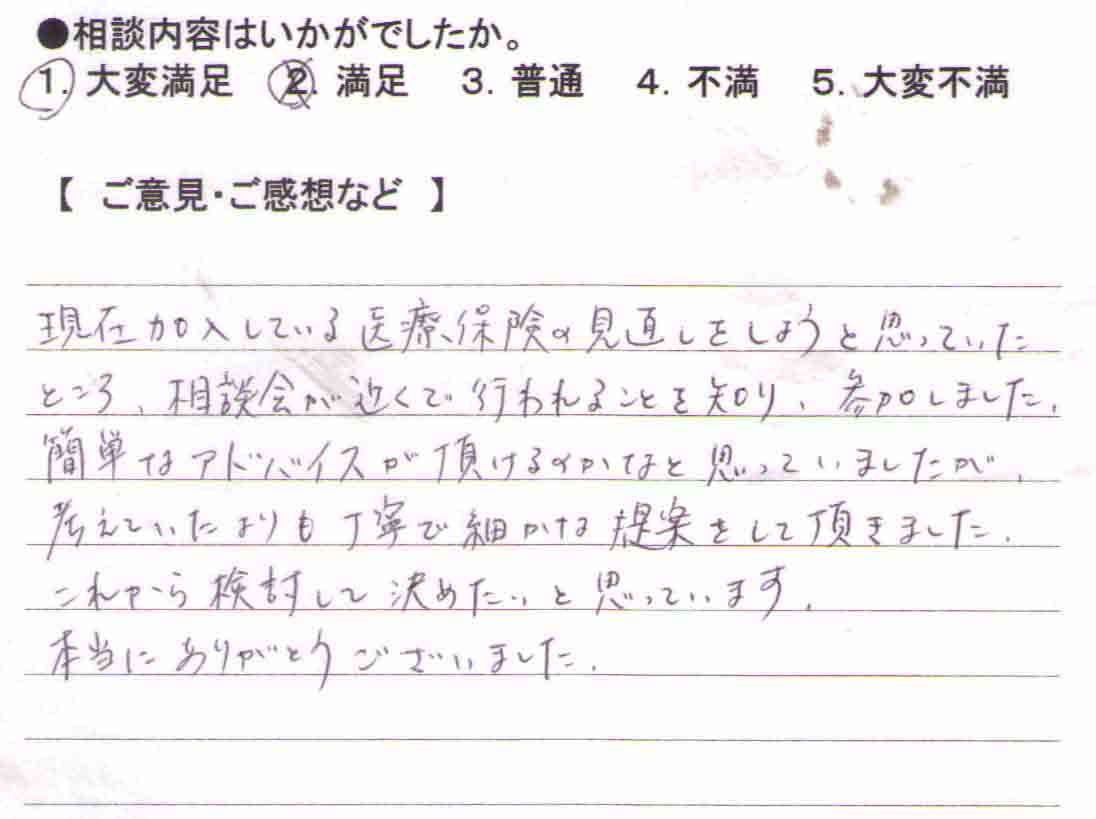 ●相談内容はいかがでしたか。
1. 大変満足 2. 満足 3. 普通 4. 不満 5. 大変不満
【 ご意見・ご感想など 】
現在加入している医療保険の見直しをしようと思っていた
ところ、相談会が近くで行われることを知り、参加しました。
簡単なアドバイスが頂けるのかなと思っていましたが、
考えていたよりも丁寧で細かな提案をして頂きました。
これから検討して決めたいと思っています。
本当にありがとうございました。